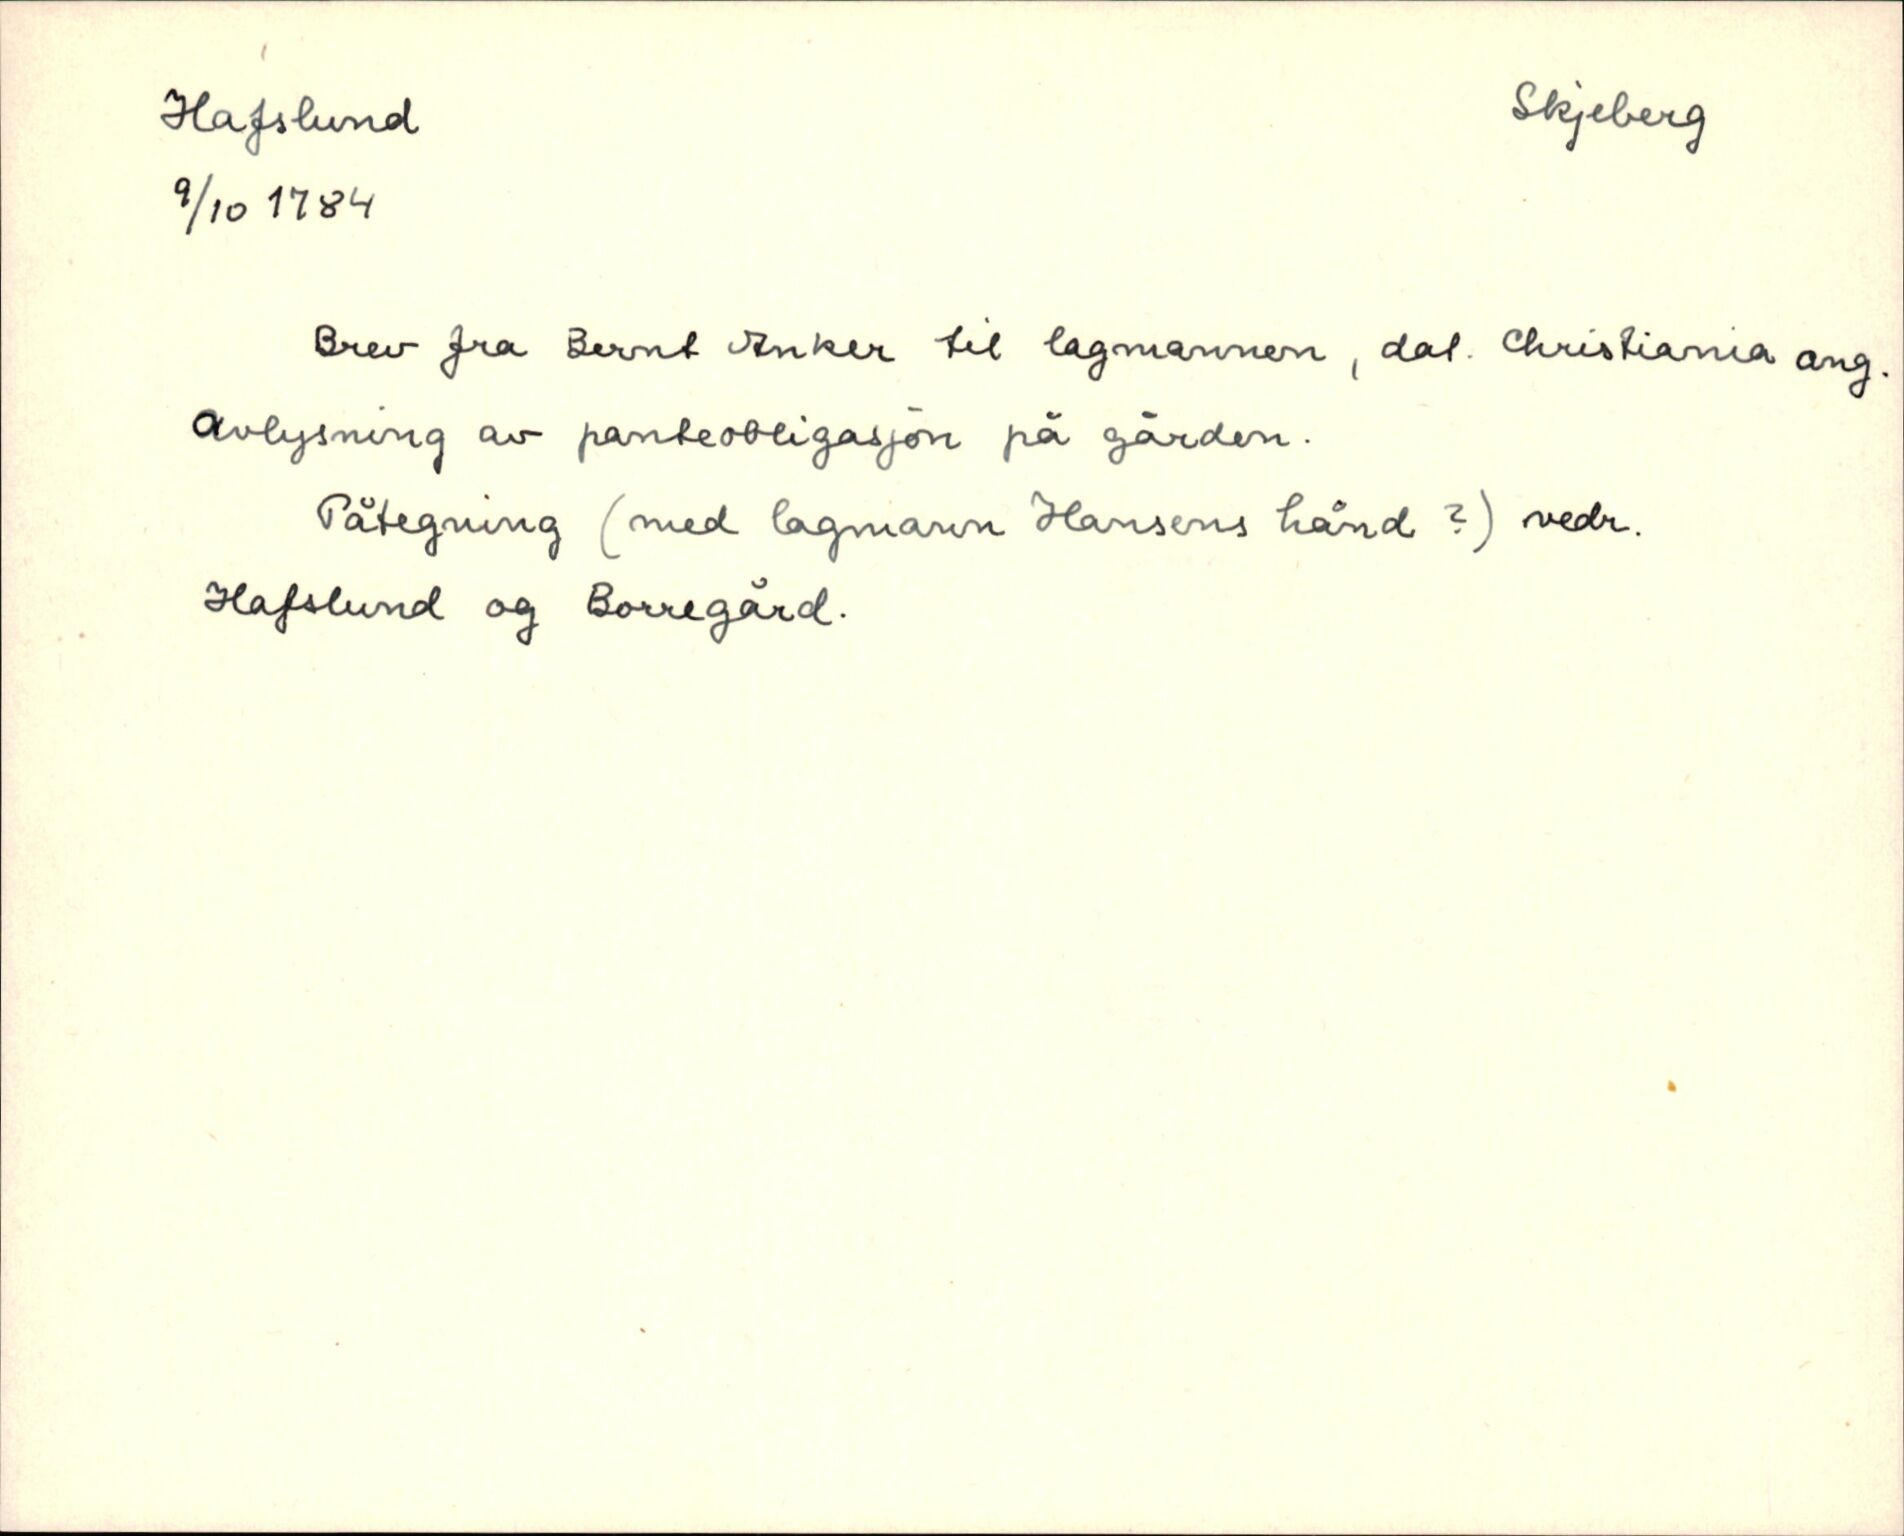 Hafslund
Skjeberg
9/10 1784
Brev fra Bernt Anker til lagmannen, dat. Christiania ang.
avlysning av panteobligasjon på gården.
Påtegning (med lagmann Hansens hånd ?) vedr.
Hafslund og Borregård.